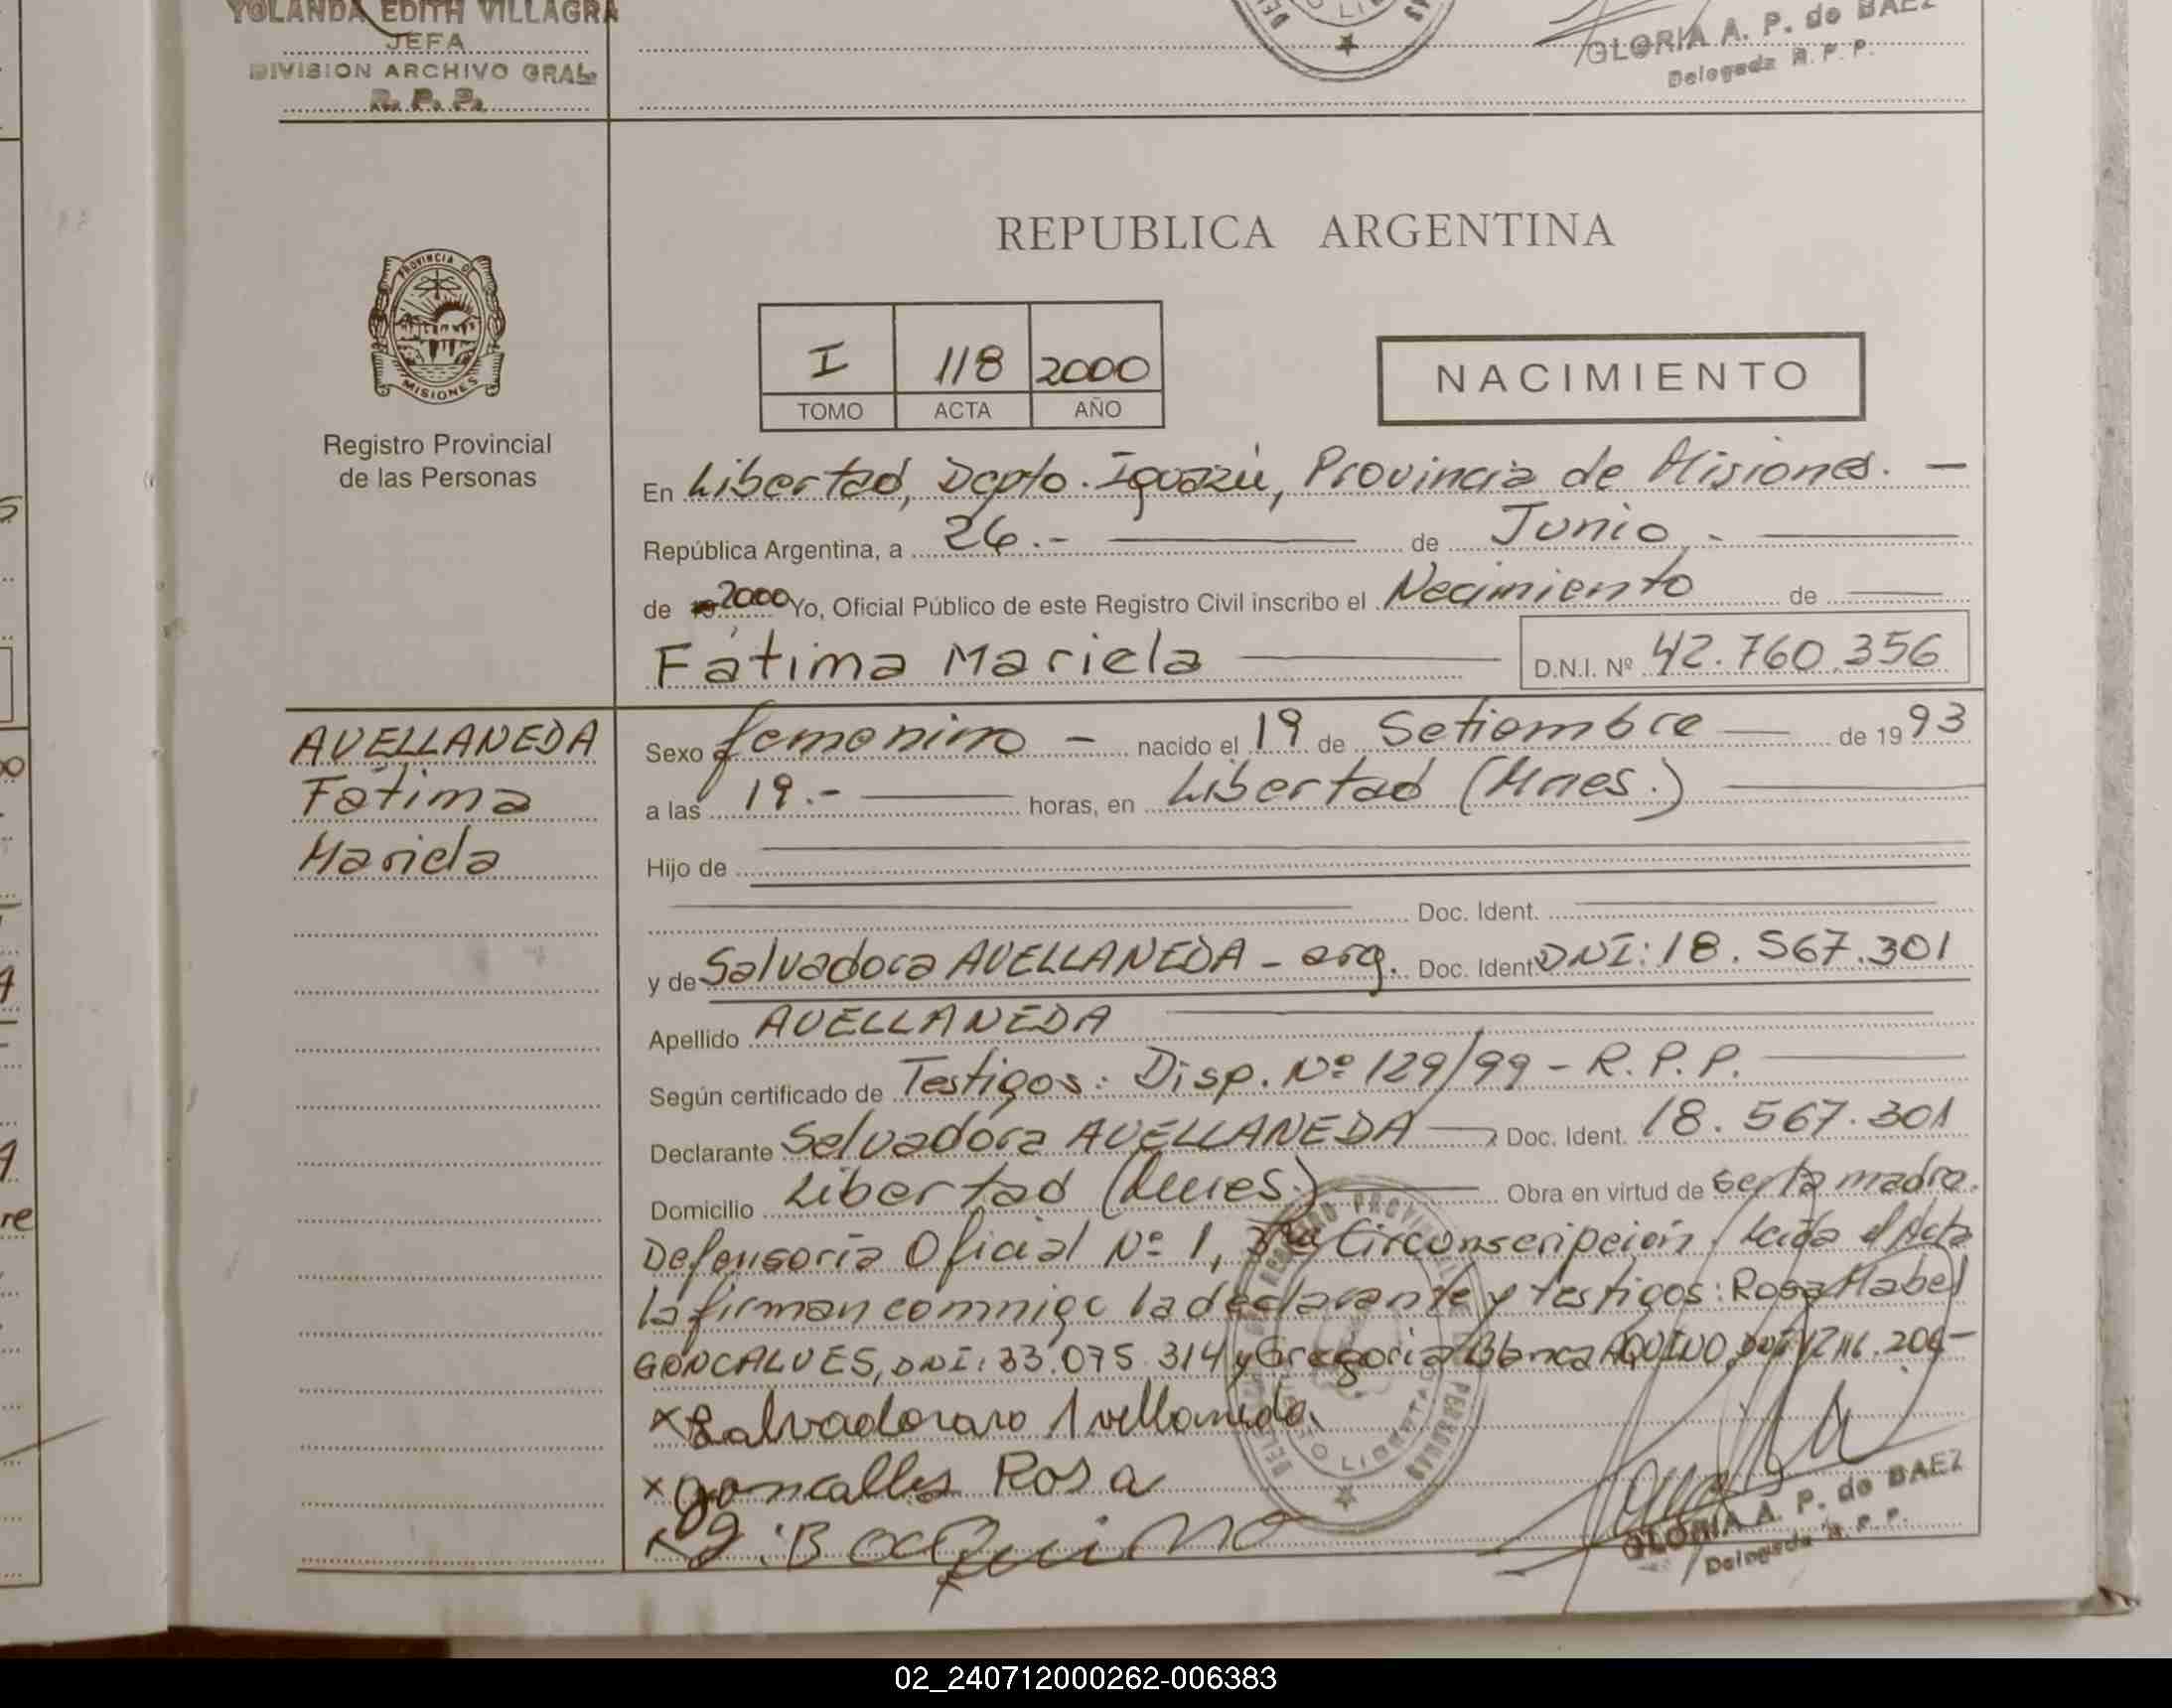 YOLANDA EDITH VILLAGRA
JEFA
DIVISION ARCHIVO GRAL.
R. P. P.
GLORIA A. P. de BAEZ
Delegada R. P. P.
REPUBLICA ARGENTINA
PROVINCIA DE
MISIONES
Registro Provincial
de las Personas
I 118 2000
TOMO ACTA AÑO
NACIMIENTO
En Libertad, Dcpto. Iguazú, Provincia de Misiones. —
República Argentina, a 26.- de Junio.-
de 2000 Yo, Oficial Público de este Registro Civil inscribo el Nacimiento de
Fátima Mariela D.N.I. Nº 42.760.356
AVELLANEDA
Fátima
Mariela
Sexo femenino - nacido el 19 de Setiembre de 1993
a las 19.- horas, en Libertad (Mnes.)
Hijo de
Doc. Ident.
y de Salvadora AVELLANEDA - arg. Doc. Ident DNI: 18.567.301
Apellido AVELLANEDA
Según certificado de Testigos: Disp. Nº 129/99 - R.P.P.
Declarante Salvadora AVELLANEDA Doc. Ident. 18.567.301
Domicilio Libertad (Mnes.) Obra en virtud de ser la madre.
Defensoría Oficial Nº 1, Circonscripción Leída el Acta
la firman conmigo la declarante y testigos: Rosa Mabel
GONCALVES, DNI: 33.075.314 y Gregoria Blanca AQUINO, DNI
x Salvadora Avellaneda
x goncalles Rosa
x g. B aquino
LIBERTAD
GLORIA A. P. de BAEZ
Delegada R. P. P.
02_240712000262-006383